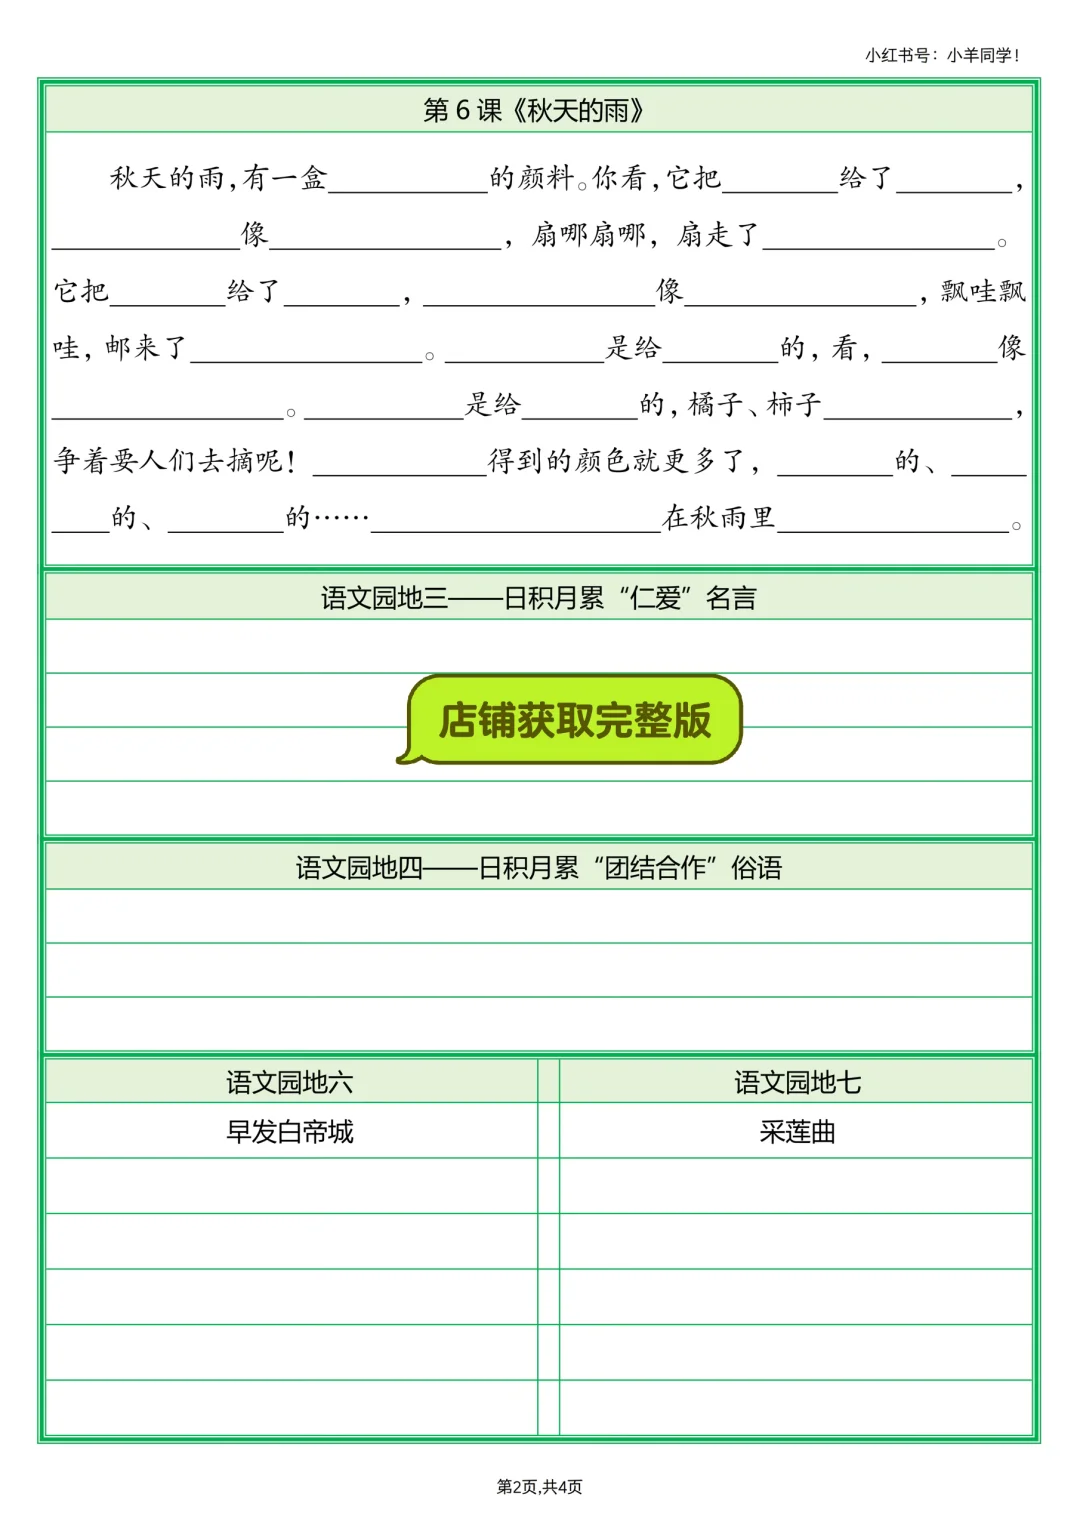 小红书号：小羊同学！
第 6 课《秋天的雨》
秋天的雨，有一盒___________的颜料。你看，它把________给了________，
_____________像________________，扇哪扇哪，扇走了________________。
它把________给了________，________________像________________，飘哇飘
哇，邮来了________________。___________是给________的，看，________像
________________。___________是给________的，橘子、柿子_____________，
争着要人们去摘呢！____________得到的颜色就更多了，________的、_____
____的、________的……____________________在秋雨里________________。
语文园地三——日积月累“仁爱”名言
店铺获取完整版
语文园地四——日积月累“团结合作”俗语
语文园地六
语文园地七
早发白帝城
采莲曲
第2页,共4页